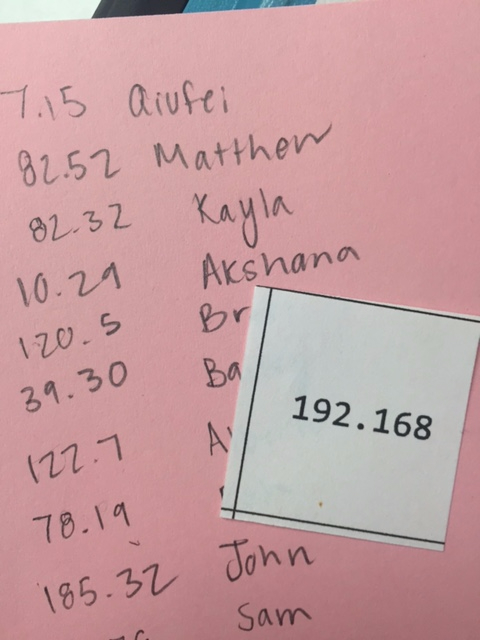 7.15 Qiufei
82.52 Matthew
82.32 Kayla
10.29 Akshana
120.5 Br
39.30 Ba
192.168
122.7 A
78.19
185.32 John
Sam